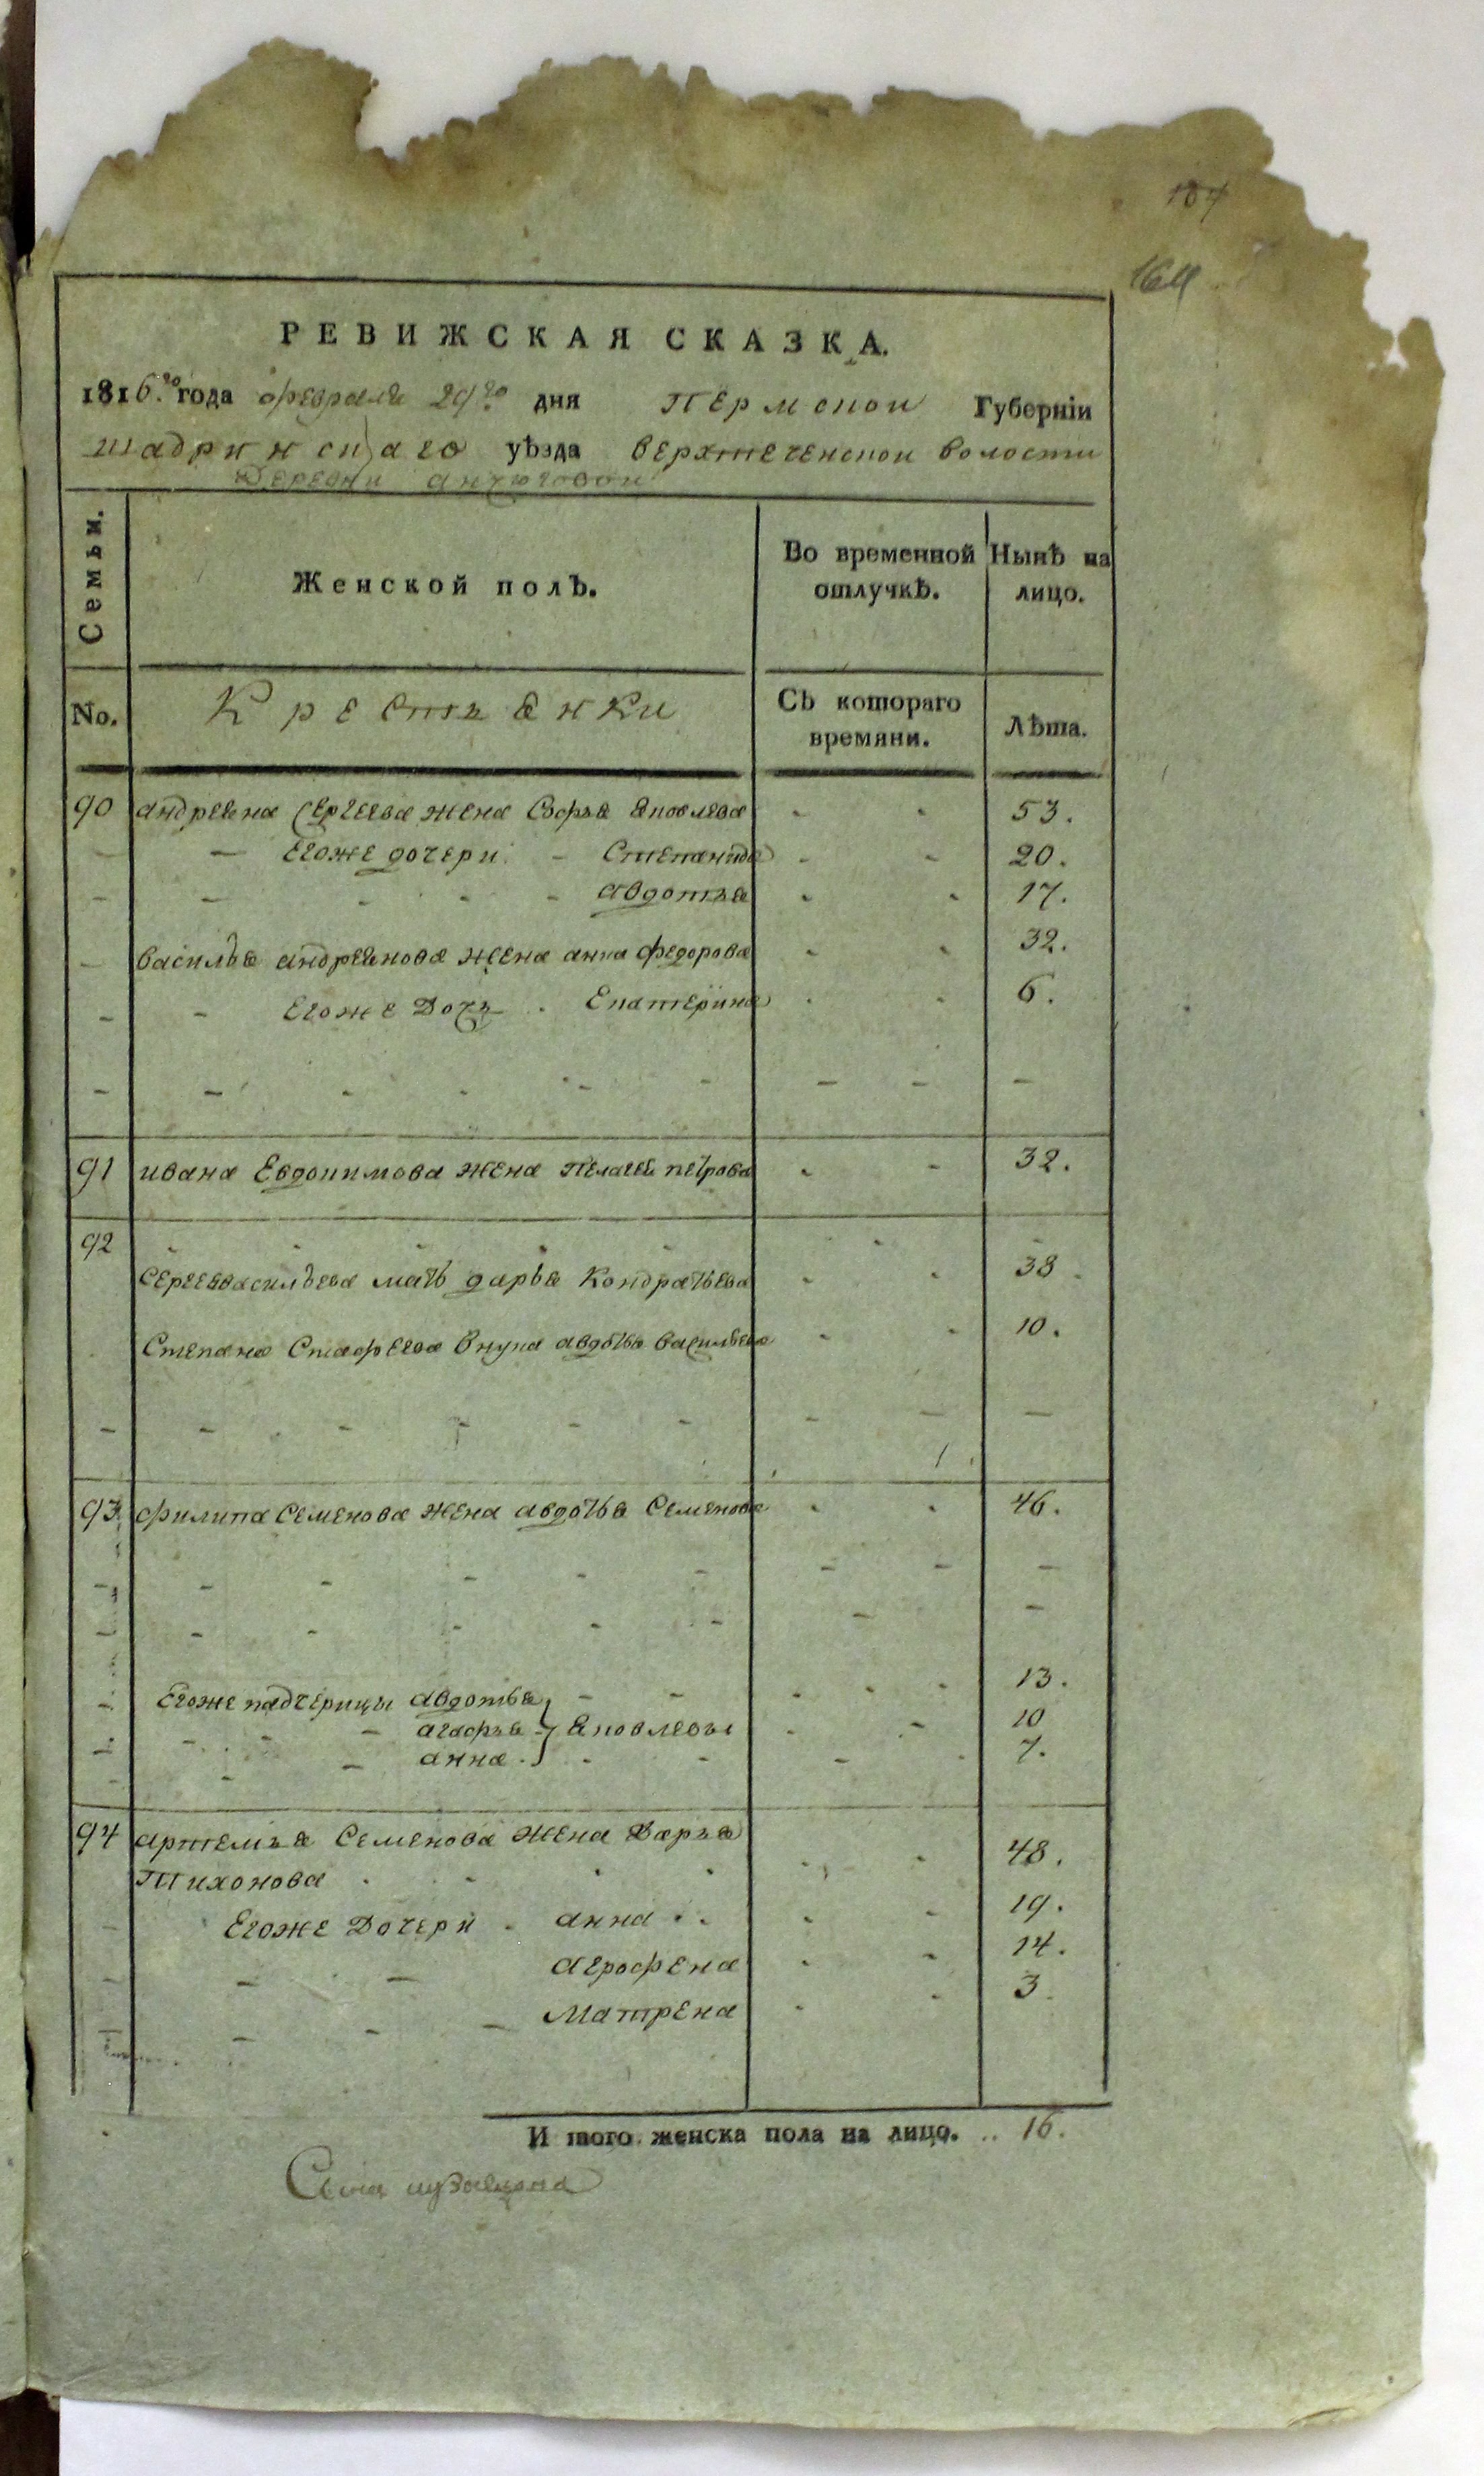 164
РЕВИЖСКАЯ СКАЗКА.
1816.го года февраля 29го дня Пермской Губерніи
шадринскаго уѣзда верхтеченской волости
Деревни анчюговой
Семьи. Женской полъ. Во временной отлучкѣ. Нынѣ на лицо.
No. Крестьянки Съ котораго времяни. Лѣта.
90 андреяна Сергеева жена Софья Яковлева 53.
Егоже дочери Степанида 20.
авдотья 17.
василья андреянова жена анна федорова 32.
Егоже Дочь Екатерина 6.
91 ивана Евдокимова жена Пелагея петрова 32.
92
Сергея васильева мать дарья Кондратьева 38
Степана Стафеева внука авдотья васильева 10.
93. филипа Семенова жена авдотья Семенова 46.
Егоже падчерицы авдотья 13.
агафья Яковлевы 10
анна 7.
94 артемья Семенова жена Дарья
Тихонова 48.
Егоже Дочери анна 19.
агрофена 14.
Матрена 3.
И того женска пола на лицо. 16.